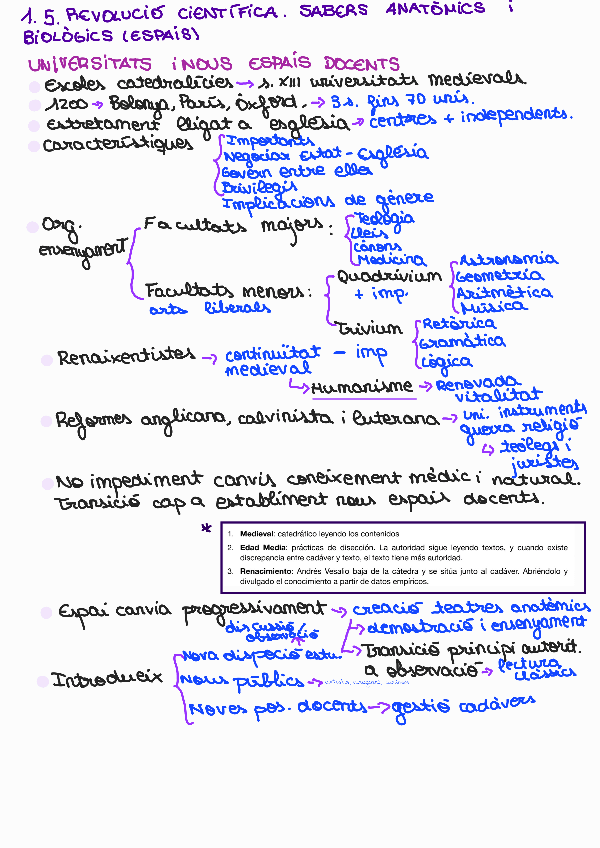 1.5. REVOLUCIÓ CIENTÍFICA. SABERS ANATÒMICS i
BIOLÒGICS (ESPAIS)
UNIVERSITATS i NOUS ESPAIS DOCENTS
Escoles catedralícies → s. XIII universitats medievals.
1200 → Bolonya, París, Òxford. → 3 s. fins 70 unis.
Estretament lligat a església → centres + independents.
Característiques
Importants
Negociar Estat - Església
Govern entre elles
Privilegis
Implicacions de gènere
Org.
ensenyament
Facultats majors:
Teologia
Lleis
Cànons
Medicina
Facultats menors:
arts liberals
Quadrivium
+ imp.
Astronomia
Geometria
Aritmètica
Música
Trivium
Retòrica
Gramàtica
Lògica
Renaixentistes → continuïtat - imp
medieval
↳ Humanisme → Renovada
vitalitat
Reformes anglicana, calvinista i luterana → uni. instruments
guerra religió
↳ teòlegs i
juristes
No impediment canvis coneixement mèdic i natural.
Transició cap a establiment nous espais docents.
*
1. Medieval: catedrático leyendo los contenidos
2. Edad Media: prácticas de disección. La autoridad sigue leyendo textos, y cuando existe
discrepancia entre cadáver y texto, el texto tiene más autoridad.
3. Renacimiento: Andrés Vesalio baja de la cátedra y se sitúa junto al cadáver. Abriéndolo y
divulgado el conocimiento a partir de datos empíricos.
Espai canvia progressivament → creació teatres anatòmics
↳ demostració i ensenyament
discussió/
observació
*
↳ Transició principi autorit.
a observació → lectura
clàssics
Introdueix
Nova disposició estu.
Nous públics →
Noves pos. docents → gestió cadàvers